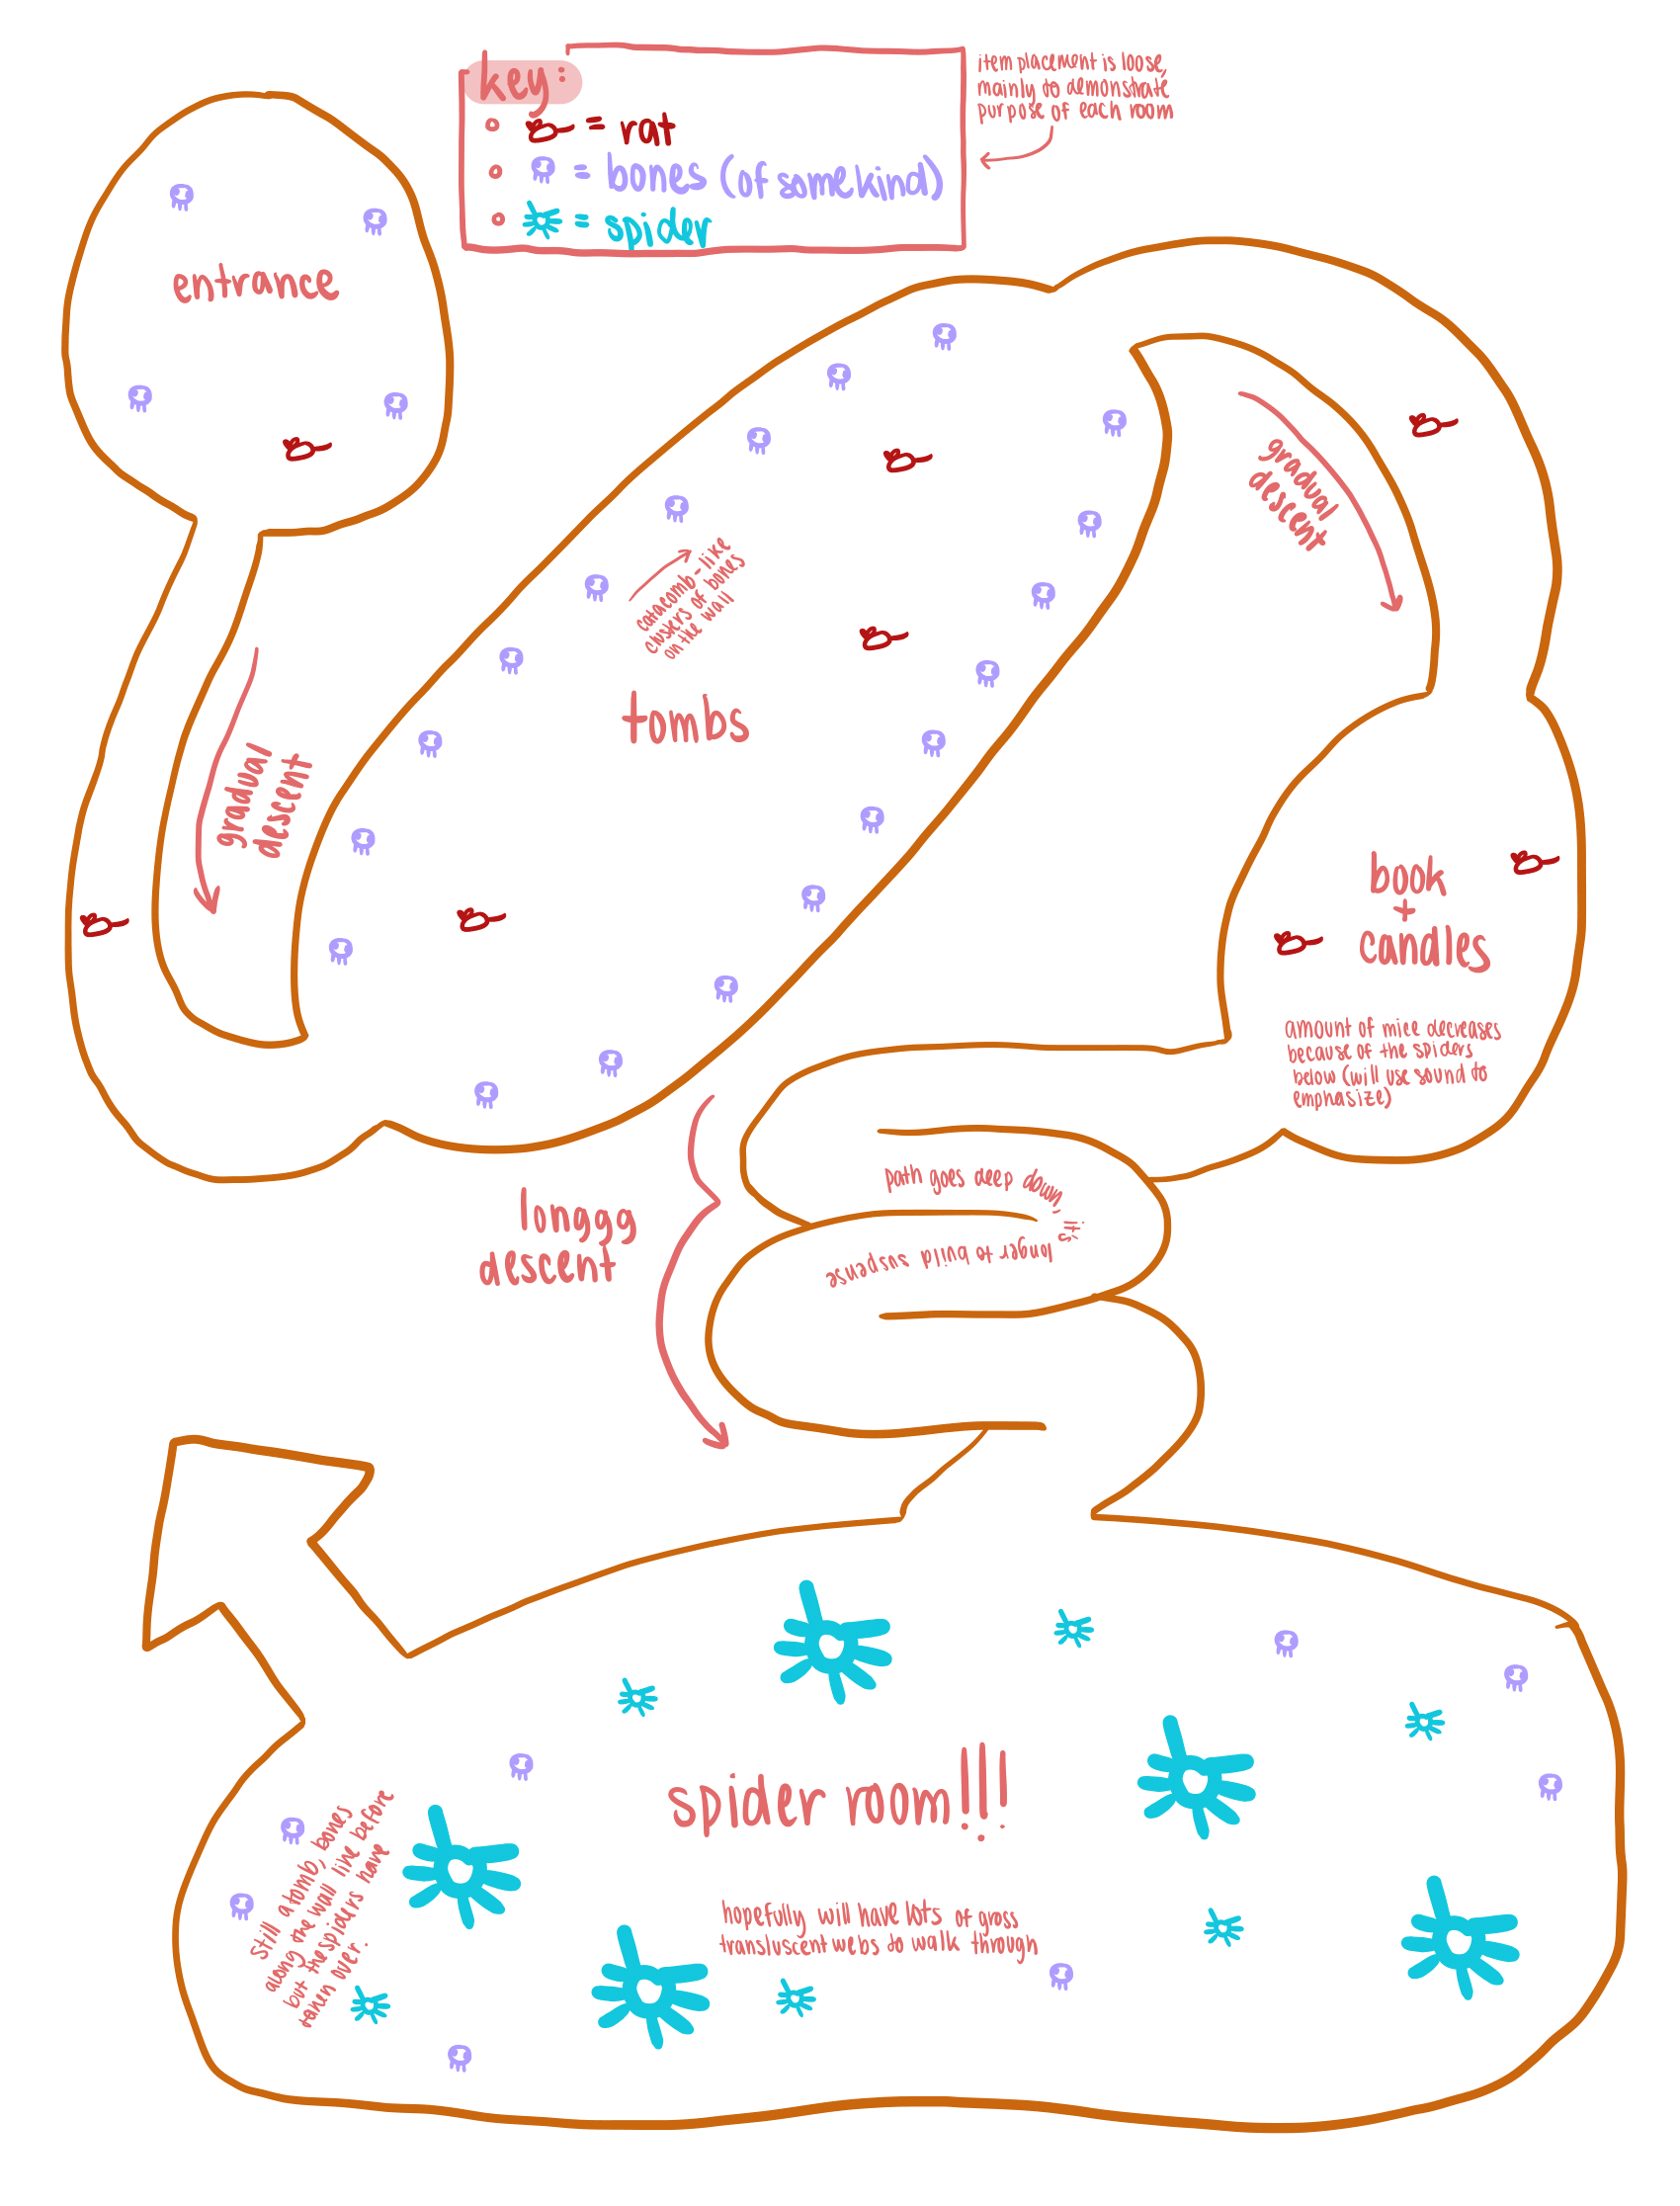 key:
= rat
= bones (of some kind)
= spider
item placement is loose,
mainly to demonstrate
purpose of each room
entrance
gradual
descent
catacomb-like
clusters of bones
on the wall
tombs
gradual
descent
book
+
candles
amount of mice decreases
because of the spiders
below (will use sound to
emphasize)
path goes deep down, it's
longer to build suspense
longgg
descent
spider room!!!
hopefully will have lots of gross
transluscent webs to walk through
still a tomb, bones
along the wall like before
but the spiders have
taken over.